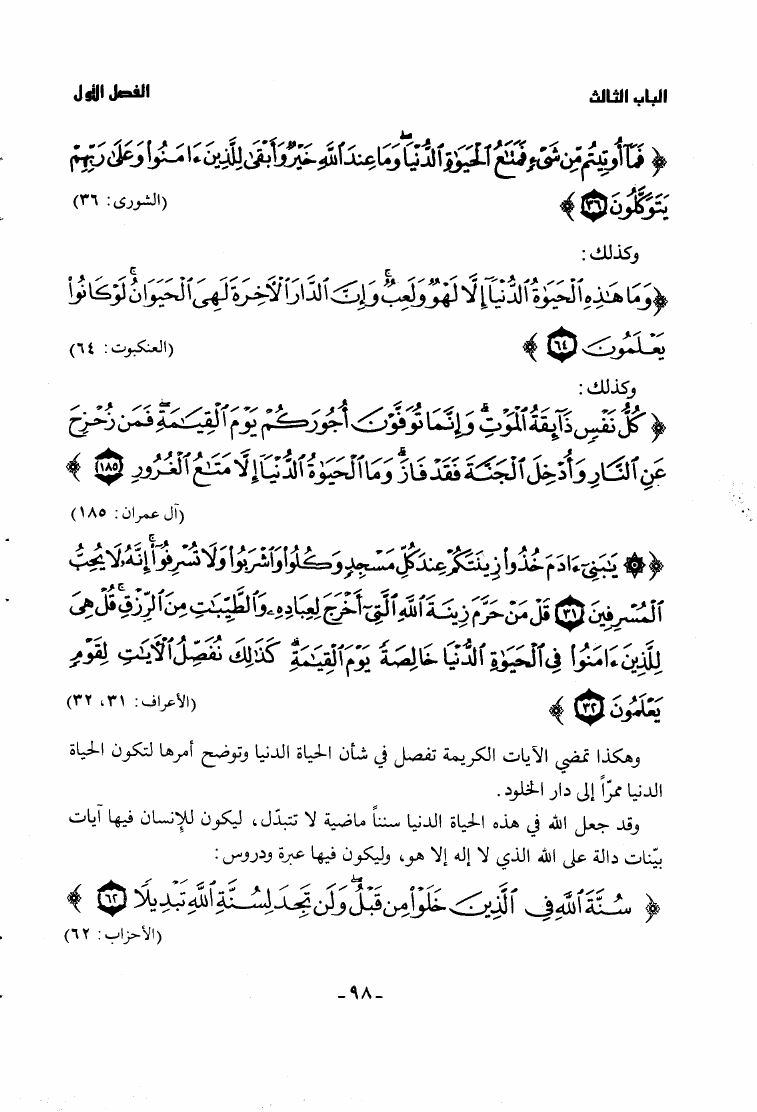 الباب الثالث الفصل الأول
﴿ فَمَآ أُوتِيتُم مِّن شَىْءٍ فَمَتَٰعُ ٱلْحَيَوٰةِ ٱلدُّنْيَا ۖ وَمَا عِندَ ٱللَّهِ خَيْرٌ وَأَبْقَىٰ لِلَّذِينَ ءَامَنُوا۟ وَعَلَىٰ رَبِّهِمْ
يَتَوَكَّلُونَ ٣٦ ﴾ (الشورى: ٣٦)
وكذلك:
﴿ وَمَا هَٰذِهِ ٱلْحَيَوٰةُ ٱلدُّنْيَآ إِلَّا لَهْوٌ وَلَعِبٌ ۚ وَإِنَّ ٱلدَّارَ ٱلْءَاخِرَةَ لَهِىَ ٱلْحَيَوَانُ ۚ لَوْ كَانُوا۟
يَعْلَمُونَ ٦٤ ﴾ (العنكبوت: ٦٤)
وكذلك:
﴿ كُلُّ نَفْسٍ ذَآئِقَةُ ٱلْمَوْتِ ۗ وَإِنَّمَا تُوَفَّوْنَ أُجُورَكُمْ يَوْمَ ٱلْقِيَٰمَةِ ۖ فَمَن زُحْزِحَ
عَنِ ٱلنَّارِ وَأُدْخِلَ ٱلْجَنَّةَ فَقَدْ فَازَ ۗ وَمَا ٱلْحَيَوٰةُ ٱلدُّنْيَآ إِلَّا مَتَٰعُ ٱلْغُرُورِ ١٨٥ ﴾
(آل عمران: ١٨٥)
﴿ ۞ يَٰبَنِىٓ ءَادَمَ خُذُوا۟ زِينَتَكُمْ عِندَ كُلِّ مَسْجِدٍ وَكُلُوا۟ وَٱشْرَبُوا۟ وَلَا تُسْرِفُوٓا۟ ۚ إِنَّهُۥ لَا يُحِبُّ
ٱلْمُسْرِفِينَ ٣١ قُلْ مَنْ حَرَّمَ زِينَةَ ٱللَّهِ ٱلَّتِىٓ أَخْرَجَ لِعِبَادِهِۦ وَٱلطَّيِّبَٰتِ مِنَ ٱلرِّزْقِ ۚ قُلْ هِىَ
لِلَّذِينَ ءَامَنُوا۟ فِى ٱلْحَيَوٰةِ ٱلدُّنْيَا خَالِصَةً يَوْمَ ٱلْقِيَٰمَةِ ۗ كَذَٰلِكَ نُفَصِّلُ ٱلْءَايَٰتِ لِقَوْمٍ
يَعْلَمُونَ ٣٢ ﴾ (الأعراف: ٣١، ٣٢)
وهكذا تمضي الآيات الكريمة تفصل في شأن الحياة الدنيا وتوضح أمرها لتكون الحياة
الدنيا ممرّاً إلى دار الخلود.
وقد جعل الله في هذه الحياة الدنيا سنناً ماضية لا تتبدّل، ليكون للإنسان فيها آيات
بيّنات دالة على الله الذي لا إله إلا هو، وليكون فيها عبرة ودروس:
﴿ سُنَّةَ ٱللَّهِ فِى ٱلَّذِينَ خَلَوْا۟ مِن قَبْلُ ۖ وَلَن تَجِدَ لِسُنَّةِ ٱللَّهِ تَبْدِيلًا ٦٢ ﴾
(الأحزاب: ٦٢)
-٩٨-